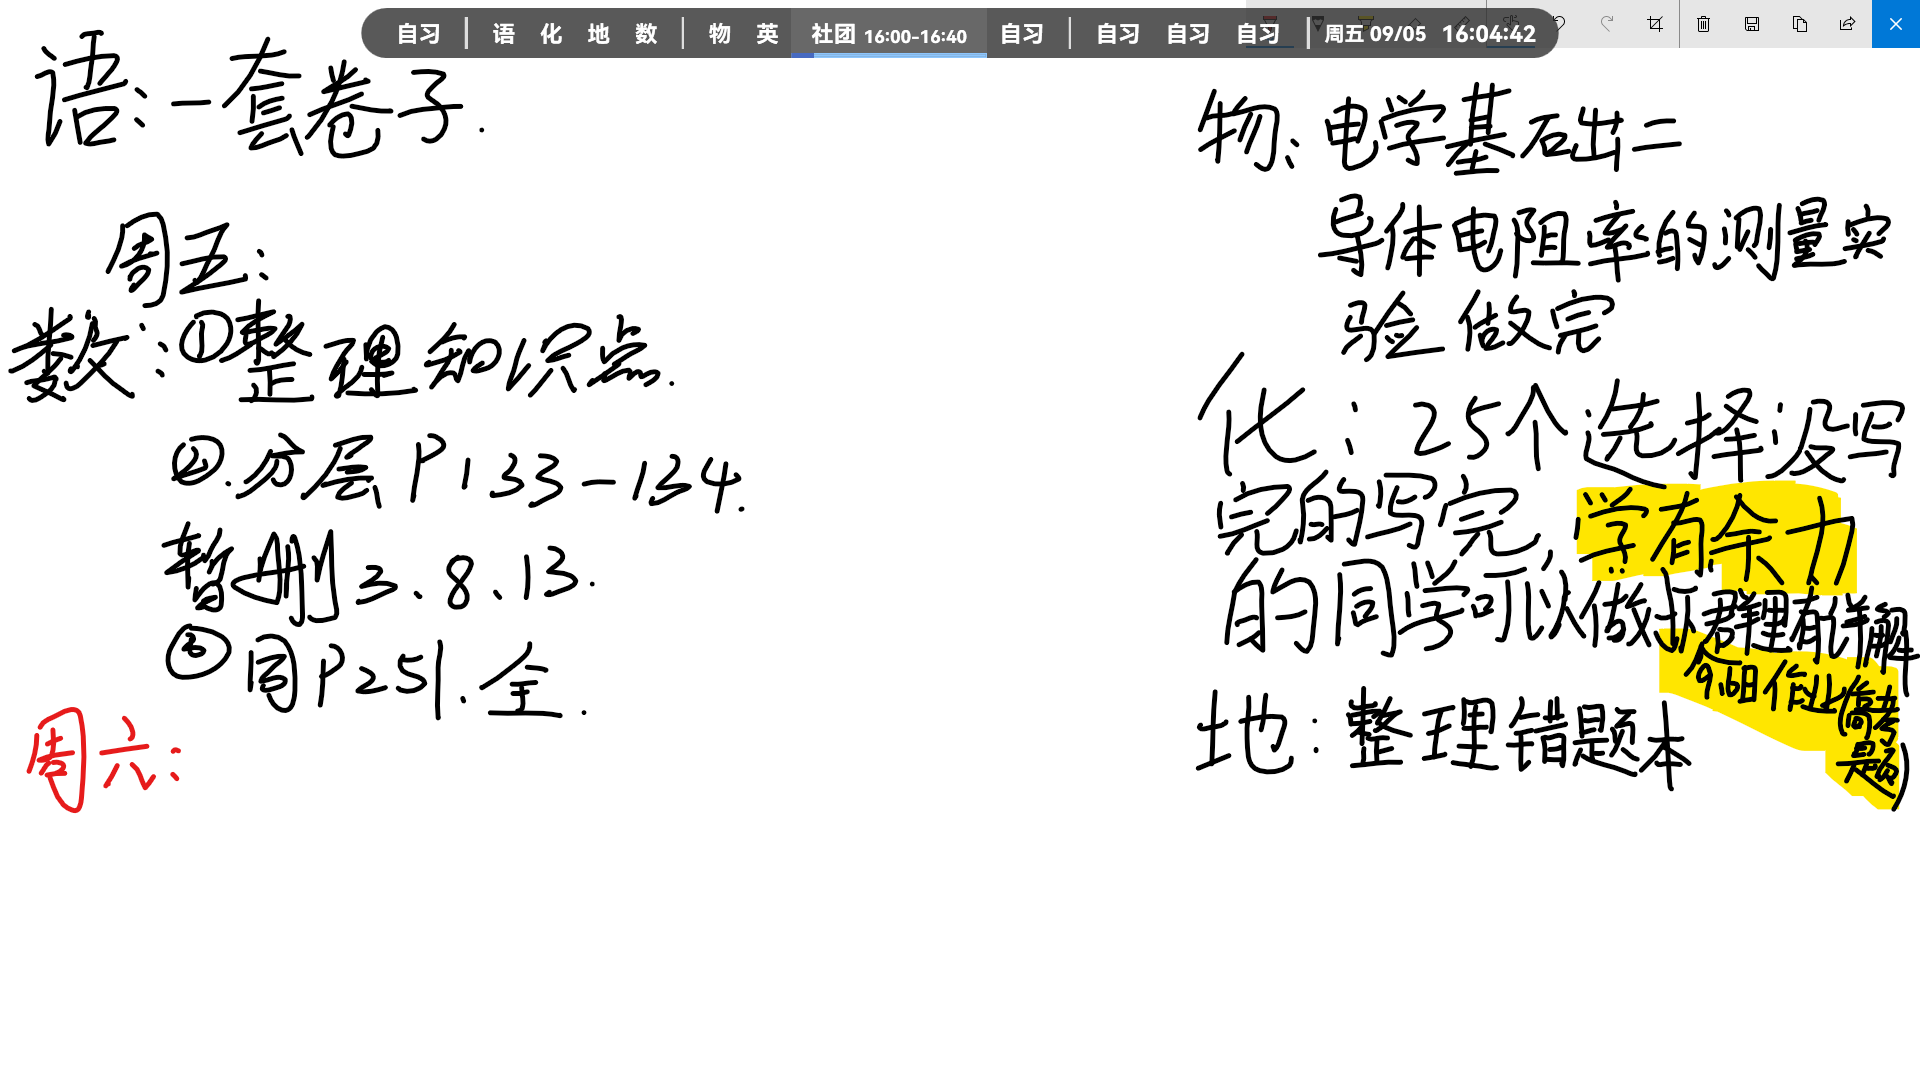 自习 | 语 化 地 数 | 物 英 社团 16:00-16:40 自习 | 自习 自习 自习 | 周五 09/05 16:04:42
语:一套卷子.
周五:
数:①整理知识点.
②.分层P133-134.
暂删3、8、13.
③同P251.全.
周六:
物:电学基础出二
导体电阻率的测量实
验做完
化:25个选择没写
完的写完,学有余力
的同学可以做
群里有详解
9.6日作业(高考
题)
地:整理错题本